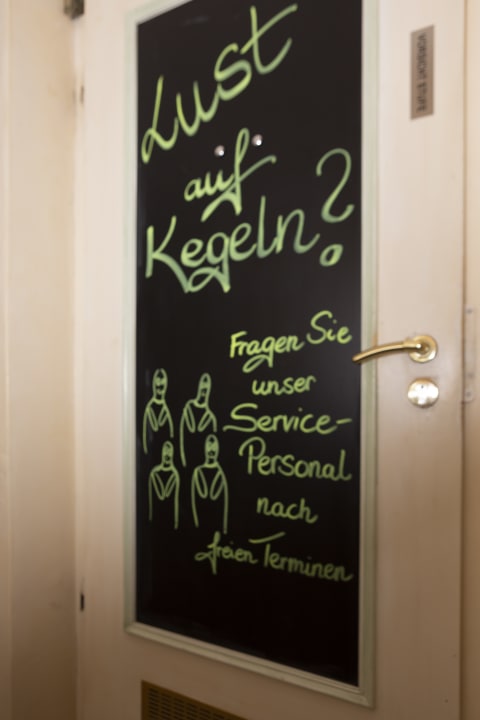 Lust
auf
Kegeln?
Fragen Sie
unser
Service-
Personal
nach
freien Terminen
VORSICHT STUFE